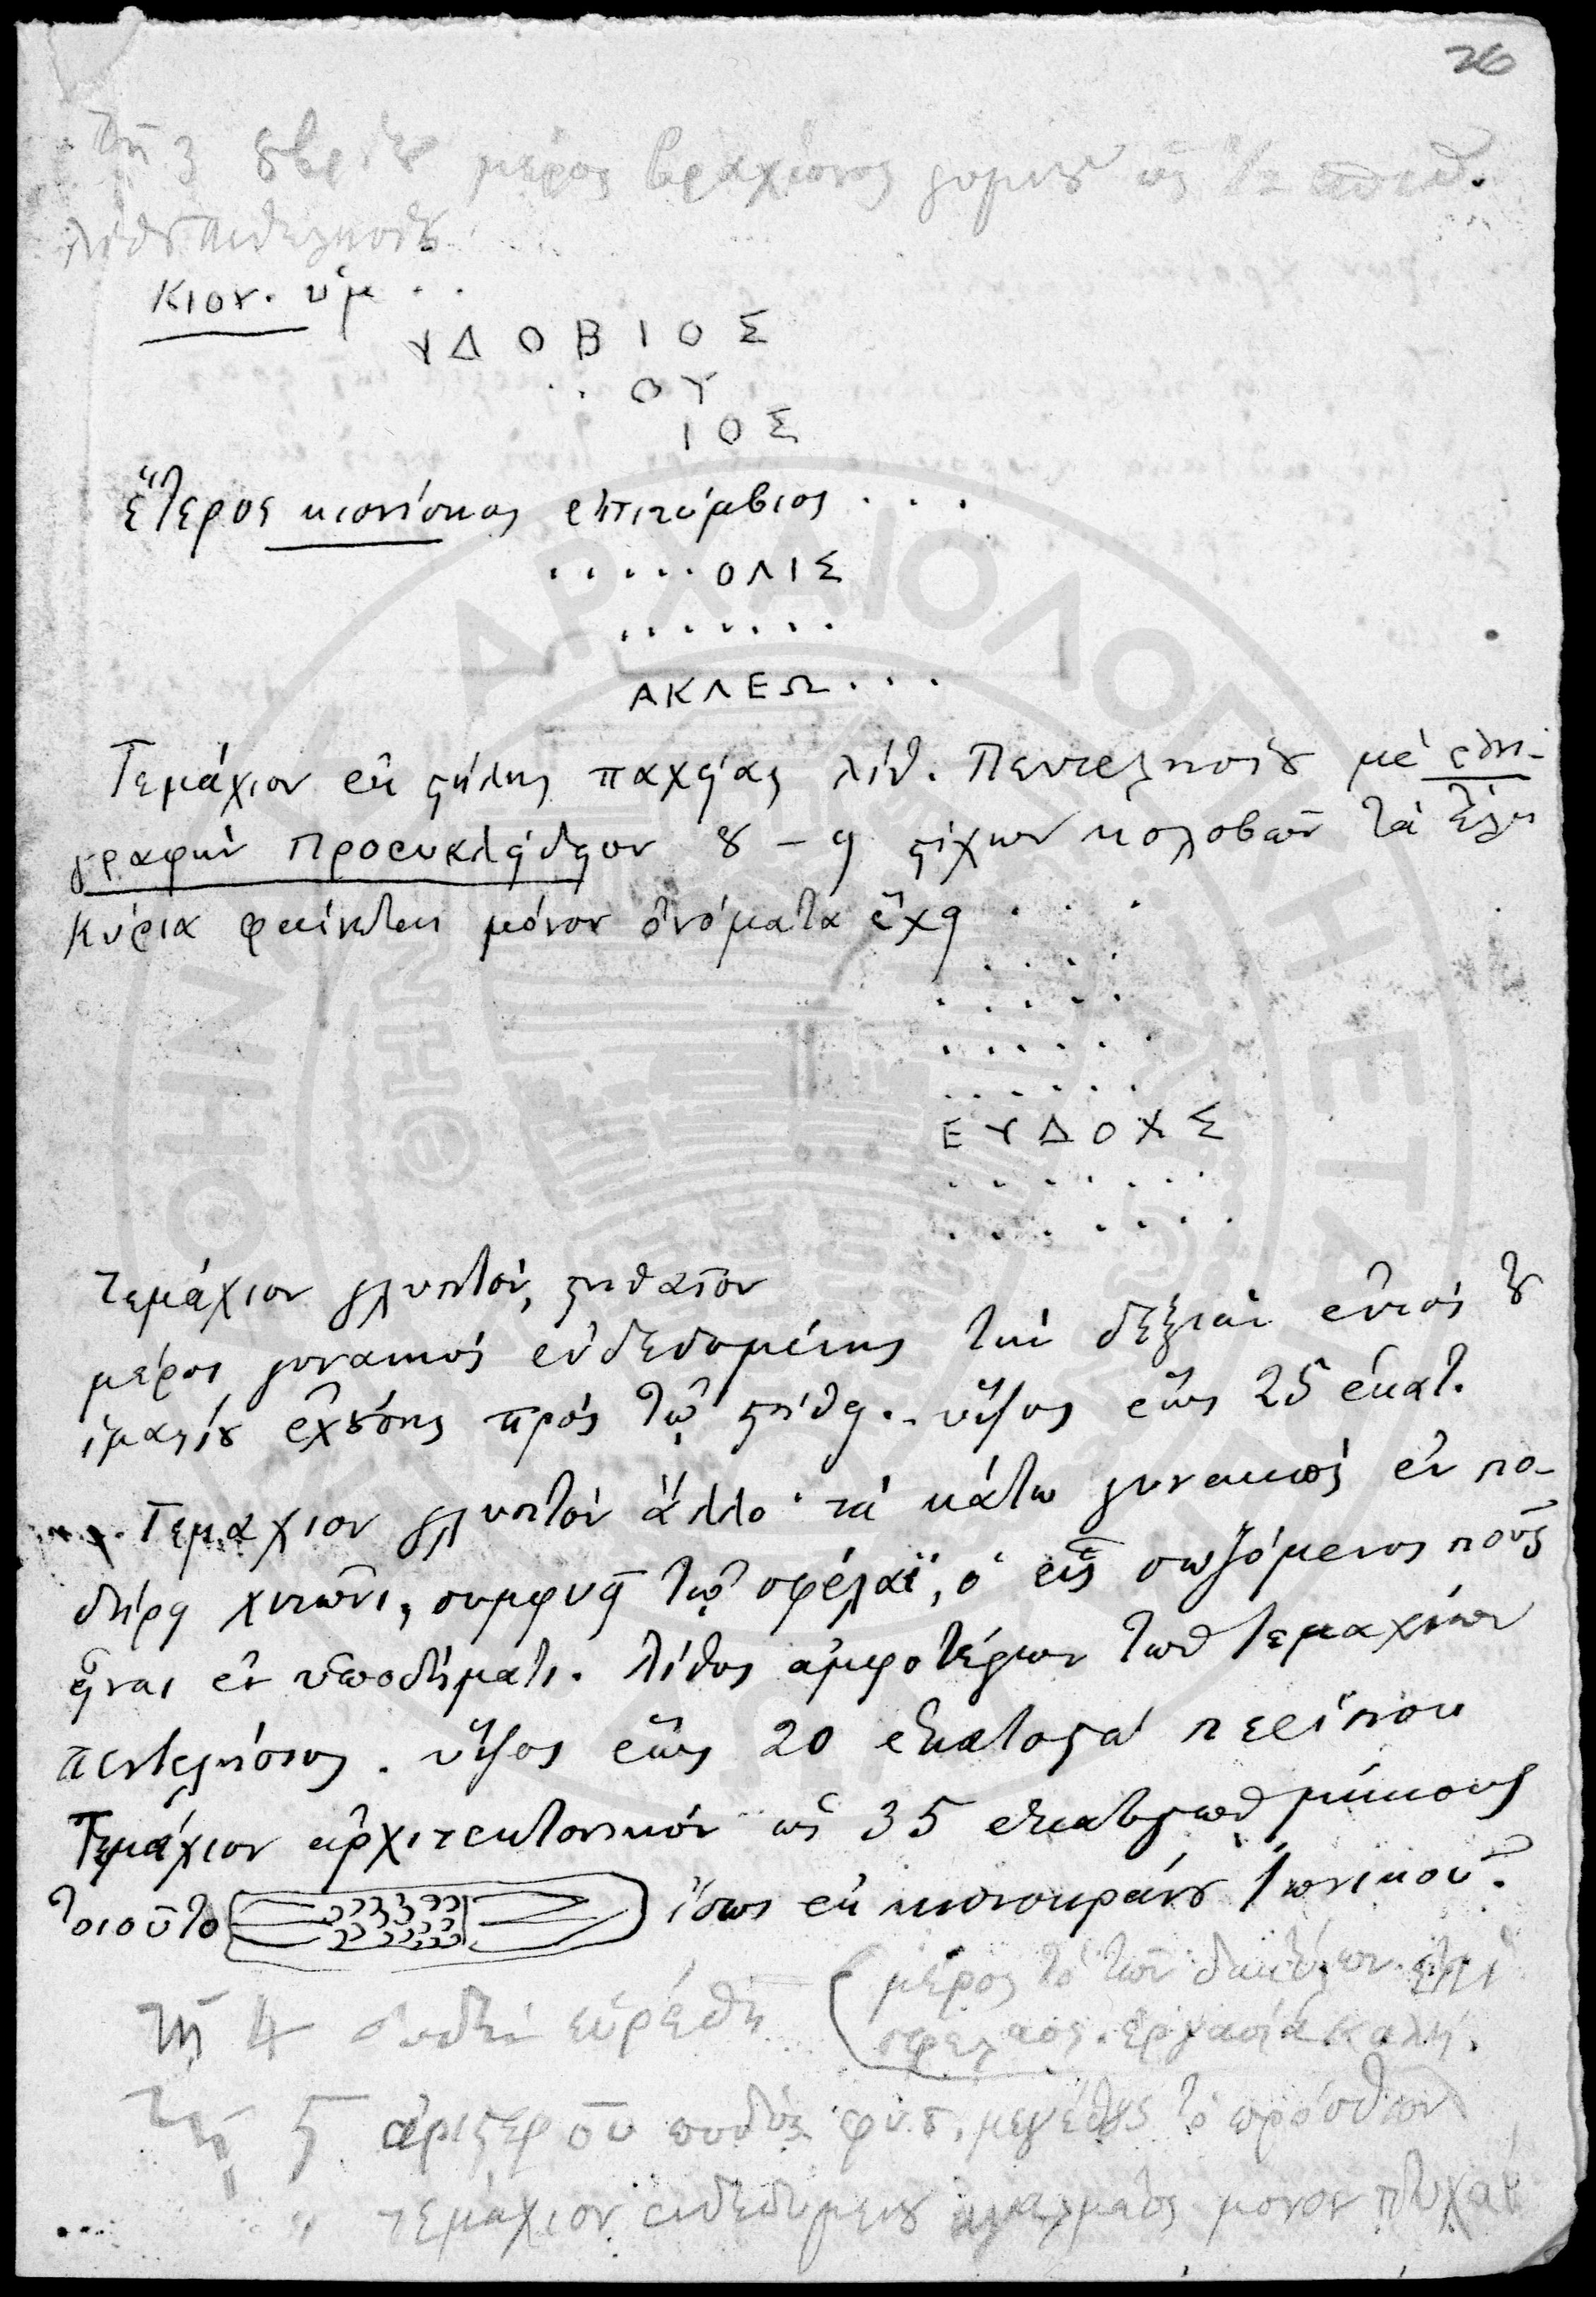 26
τῇ 3 μέρος βραχίονος γυμνοῦ ὡς 1/2
λίθου πεντελησίου
Κιον. ὑμ . .
ΥΔΟΒΙΟΣ
. . ΟΥ
ΙΟΣ
ἕτερος κιονίσκος ἐπιτύμβιος . . .
. . . . . ΟΛΙΣ
. . . . . . .
ΑΚΛΕΩ . . .
Τεμάχιον ἐκ στήλης παχείας λίθ. Πεντελησίου μὲ ἐπι-
γραφὴν Προευκλείδειον 8 – 9 στίχων κολοβῶν τὰ τέλη
Κύρια φαίνεται μόνον ὀνόματα ἔχει . . .
. . . .
. . . . .
. . . . . .
. . . . . .
ΕΥΔΟΧΣ
. . . . . . .
. . . . . . . .
τεμάχιον γλυπτόν, στηθαῖον
μέρος γυναικὸς ἐνδεδυμένης τὴν δεξιὰν ἐντὸς τοῦ
ἱματίου ἐχούσης πρὸς τῷ στήθει. – ὕψος ἕως 25 ἑκατ.
Τεμάχιον γλυπτὸν ἄλλο· τὰ κάτω γυναικὸς ἐν πο-
δήρει χιτῶνι, συμφυῆ τῷ σφέλαϊ, ὁ εἷς σωζόμενος ποῦς
εἶναι ἐν ὑποδήματι. λίθος ἀμφοτέρων τῶν τεμαχίων
πεντελήσιος. ὕψος ἕως 20 ἑκατοστὰ περίπου
Τεμάχιον ἀρχιτεκτονικὸν ὡς 35 ἑκατοστῶν μήκους
τοιοῦτο ἴσως ἐκ κιονοκράνου Ἰωνικοῦ.
τῇ 4 οὐδὲν εὑρέθη (μέρος τὸ τῶν δακτύλων ἐπὶ
σφέλαος. ἐργασία καλή.
τῇ 5 ἀριστεροῦ ποδὸς φυσ. μεγέθους τὸ πρόσθιον
" τεμάχιον ἐνδεδυμένου ἀγάλματος μόνον πτυχαὶ